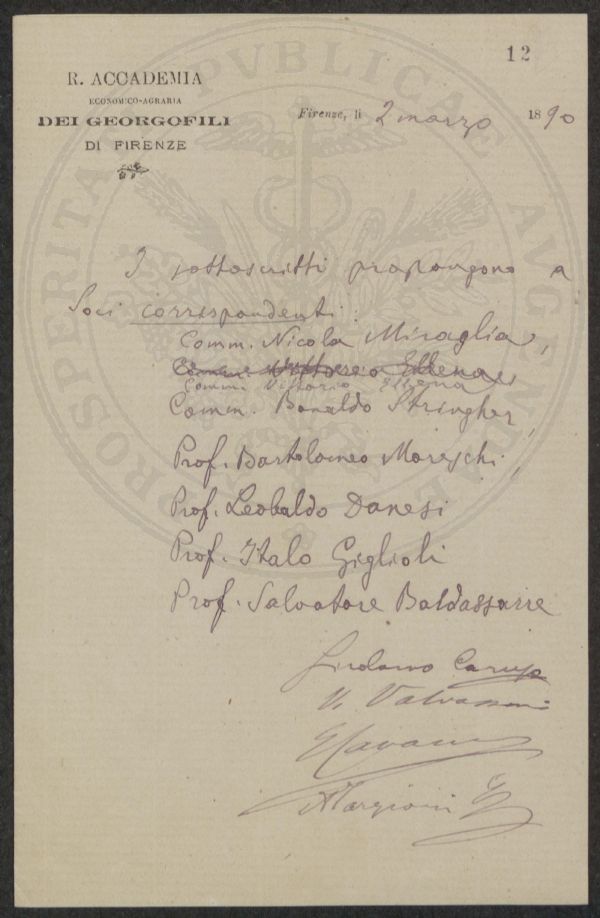 12
R. ACCADEMIA
ECONOMICO-AGRARIA
DEI GEORGOFILI
DI FIRENZE
Firenze, li 2 marzo 1890
PROSPERITATI PVBLICAE AVGENDAE
I sottoscritti propongono a
Soci corrispondenti:
Comm. Nicola Miraglia,
Comm. Vittorio Ellena,
Comm. Vittorio Ellena
Comm. Bonaldo Stringher,
Prof. Bartolomeo Moreschi,
Prof. Leobaldo Danesi
Prof. Italo Giglioli
Prof. Salvatore Baldassarre
Girolamo Caruso
V. Valvassori